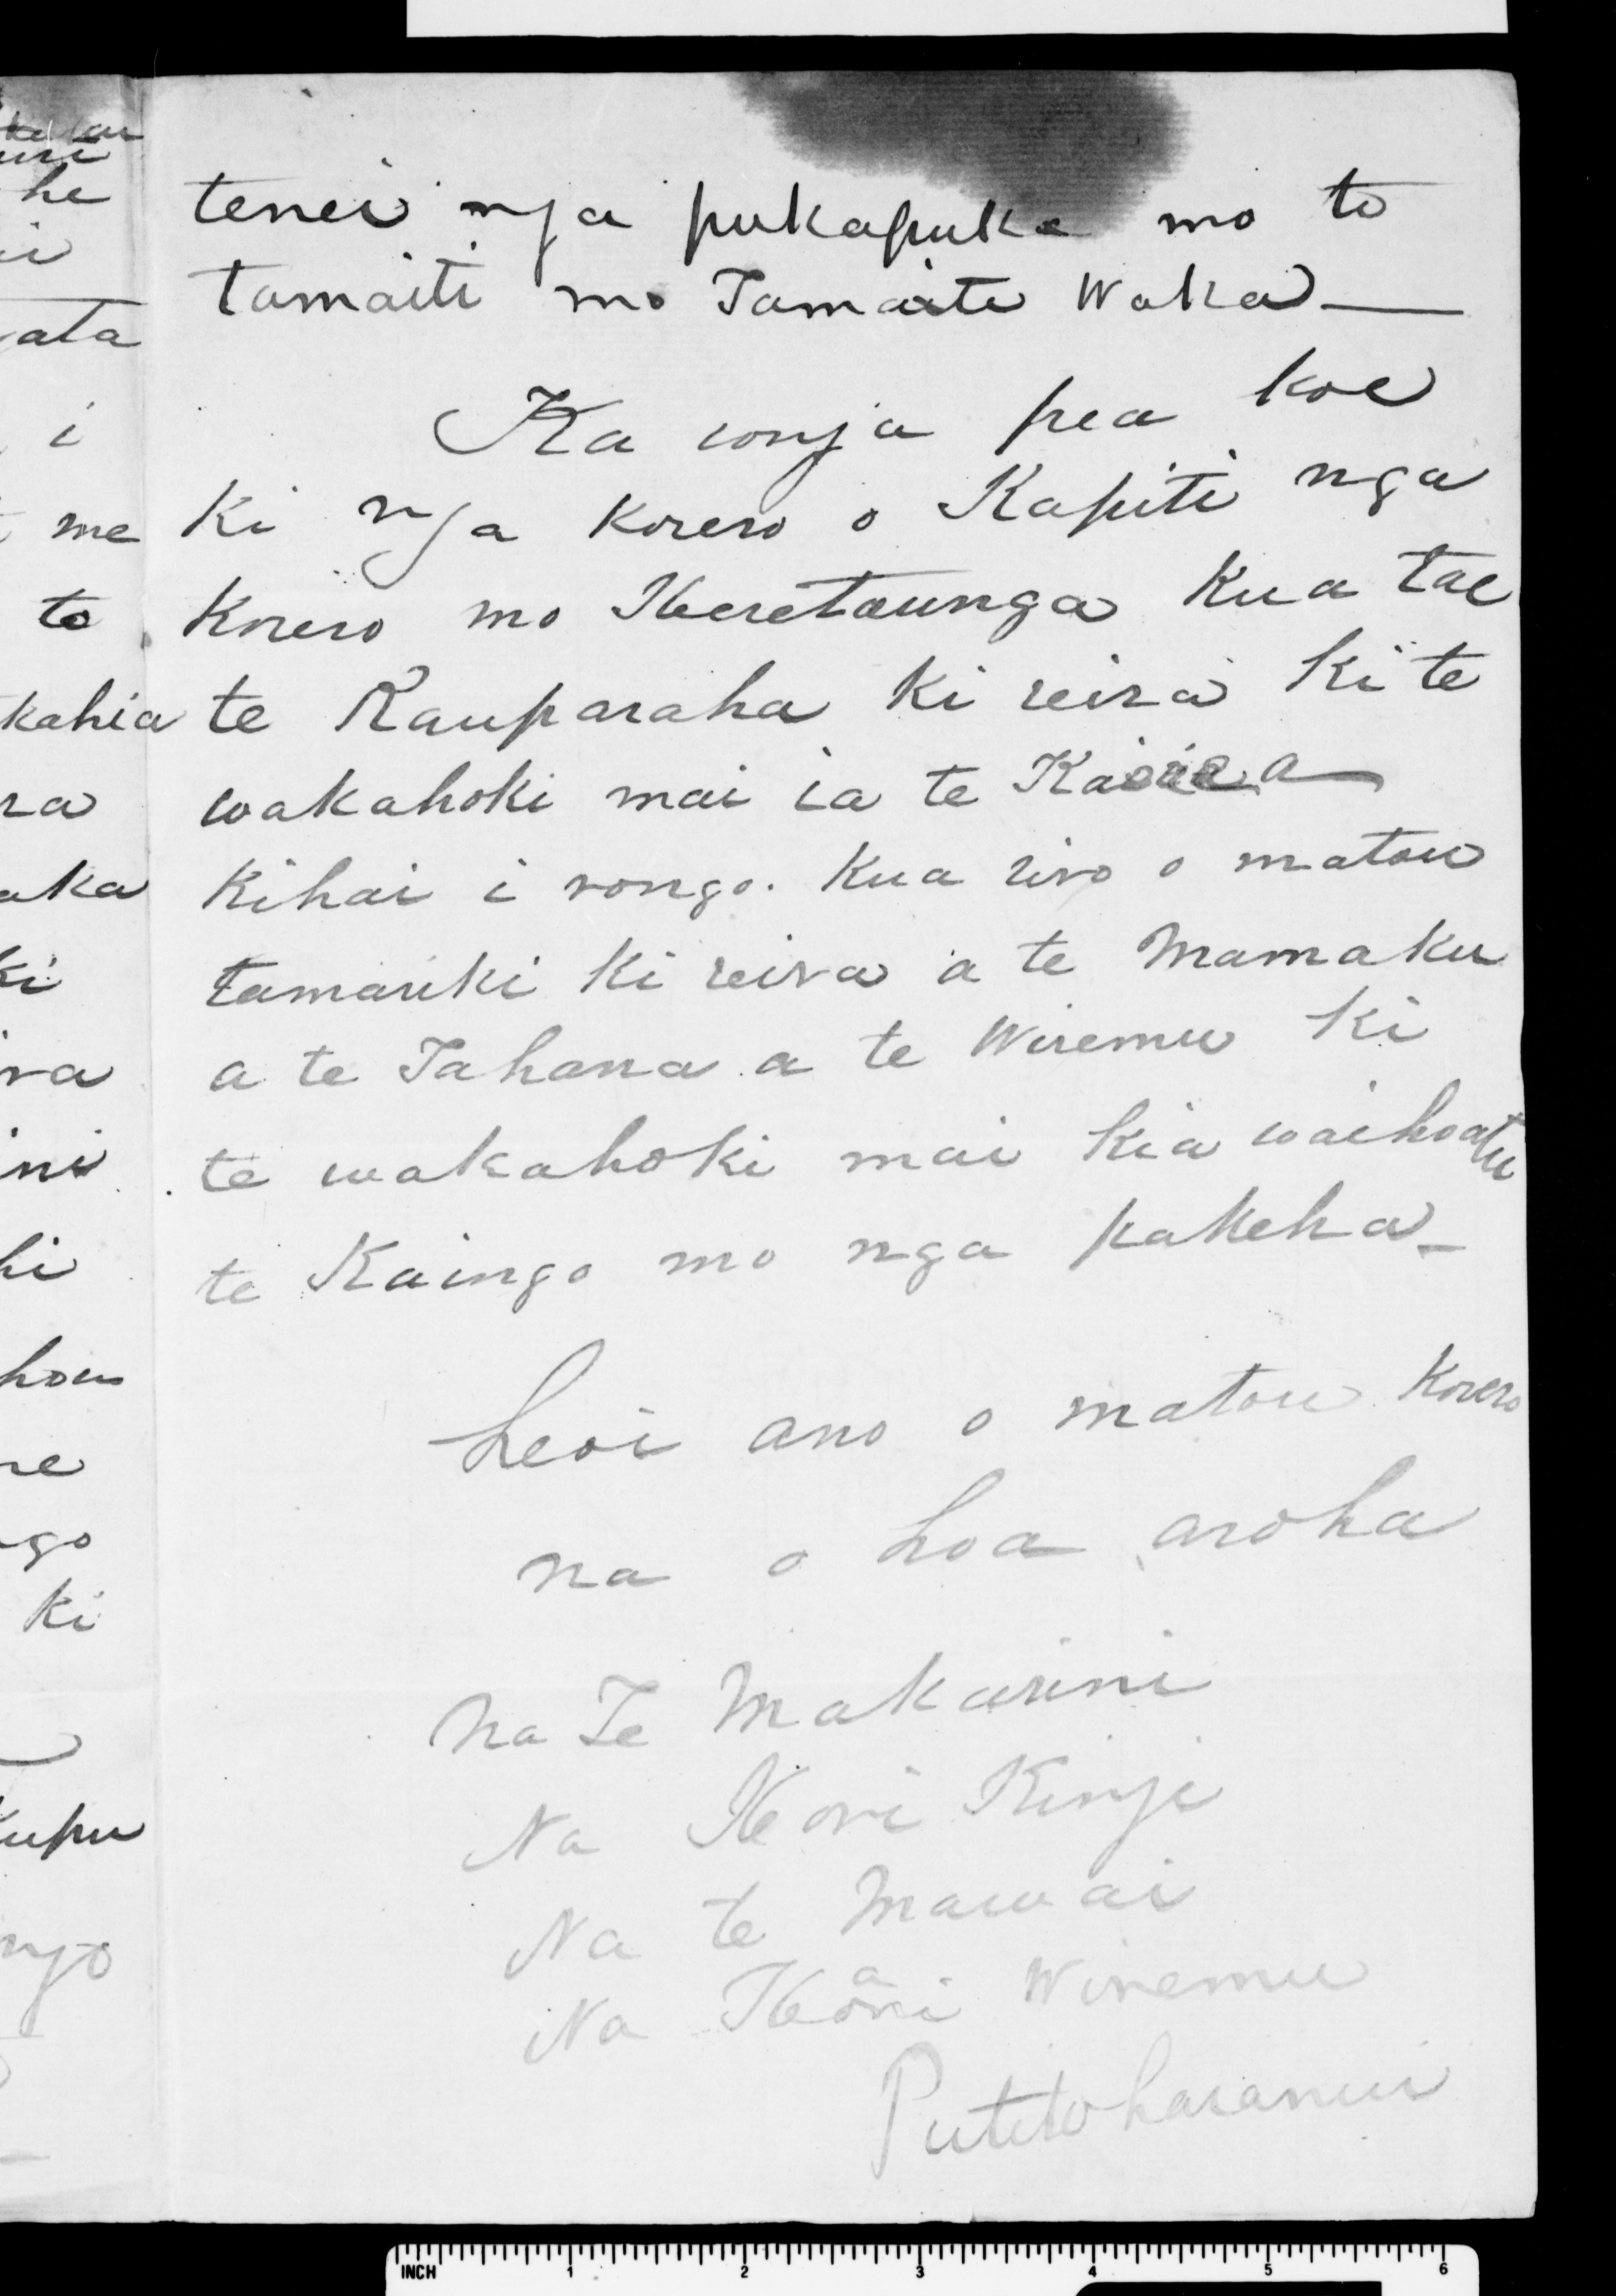 tenei nga pukapuka mo to
tamaiti mo Tamaiti Waka —
Ka wonga pea koe
ki nga korero o Kapiti nga
korero mo Heretaunga Kua tae
te Rauparaha ki reira ki te
wakahoki mai ia te
kihai i rongo. Kua riro o matou
tamariki ki reira a te Mamaku
a te Tahana a te Wiremu ki
te wakahoki mai kia waihoatu
te Kainga mo nga pakeha —
heoi ano o matou korero
na o hoa aroha
na Te Makarini
Na Hori Kingi
Na te Mawai
Na Hoani Wiremu
Putikiwharanui
he
ata
i
me
te
kahia
ra
aka
ki
ra
ni
hi
hou
re
go
ki
kupu
ngo
INCH 1 2 3 4 5 6